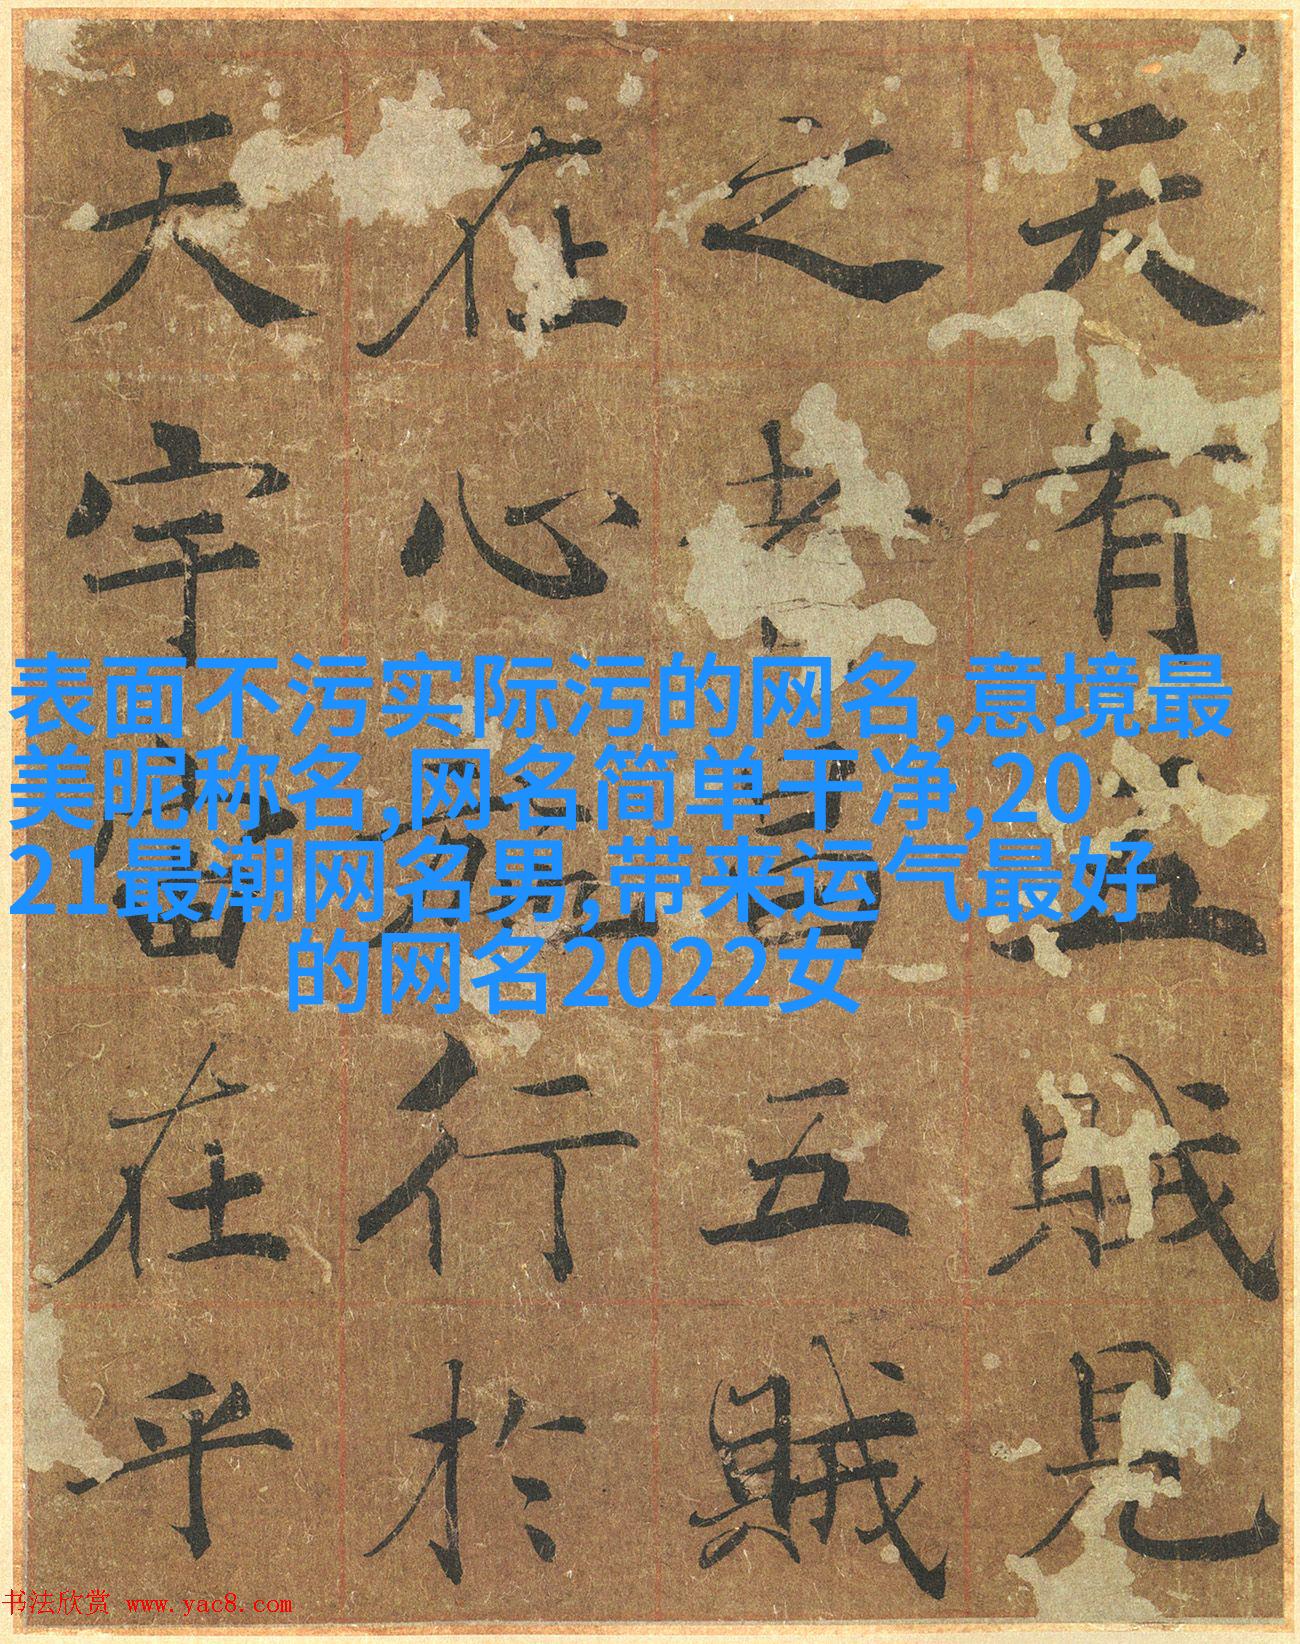 天有五賊見
之者昌五賊
在心施行於
天宇宙在乎
表面不污实际污的网名,意境最
美昵称名,网名简单干净,20
21最潮网名男,带来运气最好
的网名2022女
书法欣赏 www.yac8.com